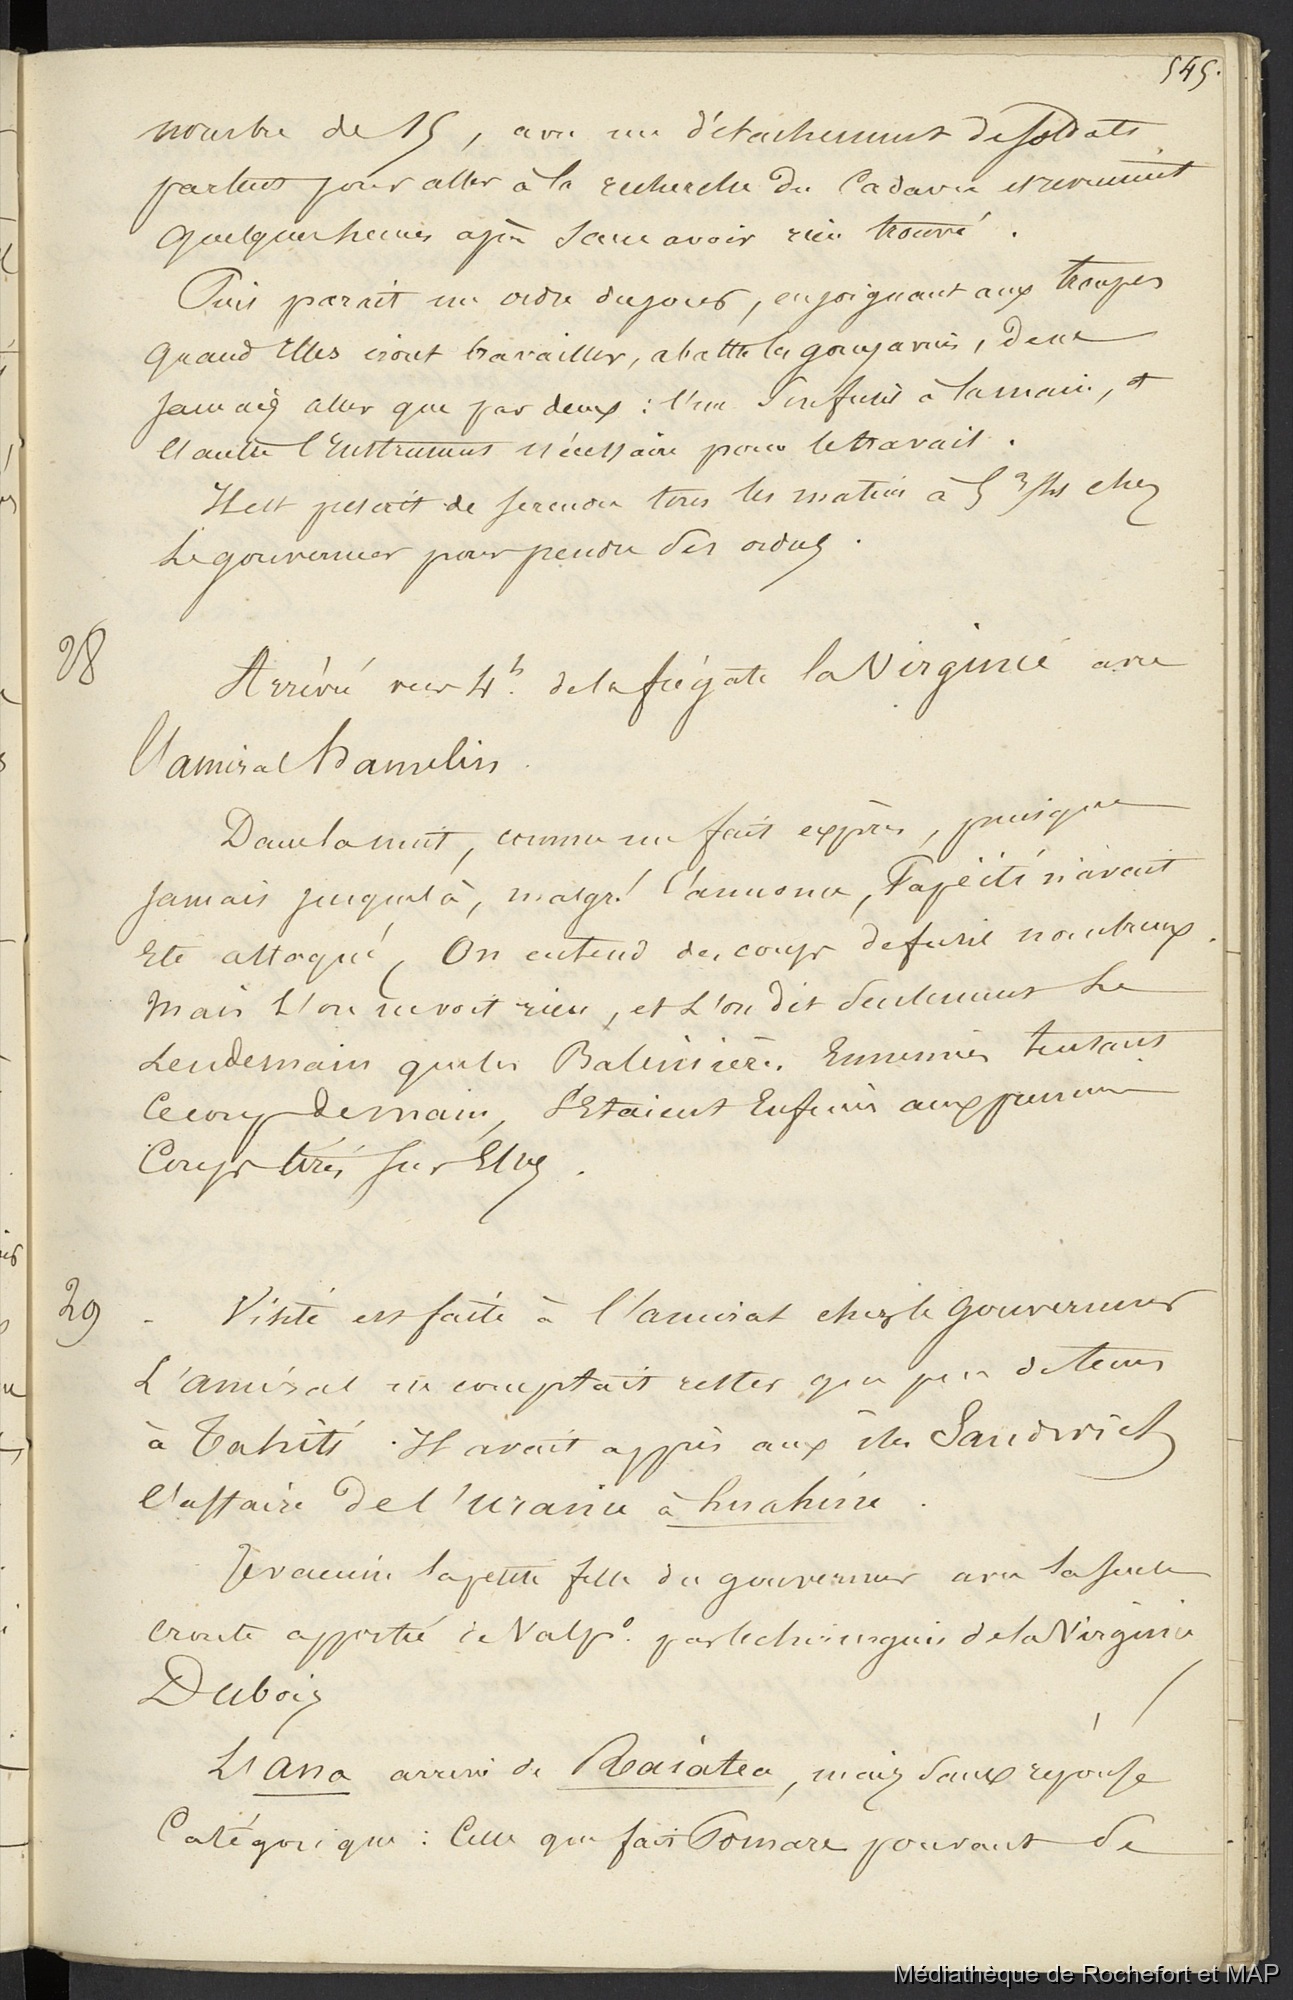 545.
nombre de 15, avec un détachement de soldats
partent pour aller à la recherche du Cadavre et reviennent
quelques heures après sans avoir rien trouvé.
Puis parait un ordre du jour, enjoignant aux troupes
quand Elles iront travailler, abattre les goujaviers, de ne
jamais aller que par deux : l'un son fusil à la main, et
l'autre l'Instrument nécessaire pour le travail.
Il est prescrit de se rendre tous les matins à 5 3/4 chez
Le gouverneur pour prendre des ordres.
28
Arrivée vers 4h. de la frégate la Virginie avec
l'amiral hamelin.
Dans la nuit, comme un fait exprès, puisque
jamais jusque là, malgré l'annonce, Papéiti n'avait
Eté attaqué, On entend des coups de fusil nombreux.
Mais l'on ne voit rien, et L'on dit seulement Le
Lendemain que les Baleinières Ennemies tentant
Ce coup de main, s'Etaient Enfuies aux premiers
Coups tirés sur Elles.
29
- Visite est faite à l'amiral chez le Gouverneur
L'amiral ne comptait rester que peu de tems
à Tahiti. Il avait appris aux îles Sandwich
l'affaire de l'uranie à huahine.
Je vaccine la petite fille du gouverneur avec la seule
croute apportée de Valpo. par le chirurgien de la Virginie
Dubois
L'ana arrive de Raiatea, mais sans réponse
Catégorique : Celle que fait Pomare pouvant se
Médiathèque de Rochefort et MAP